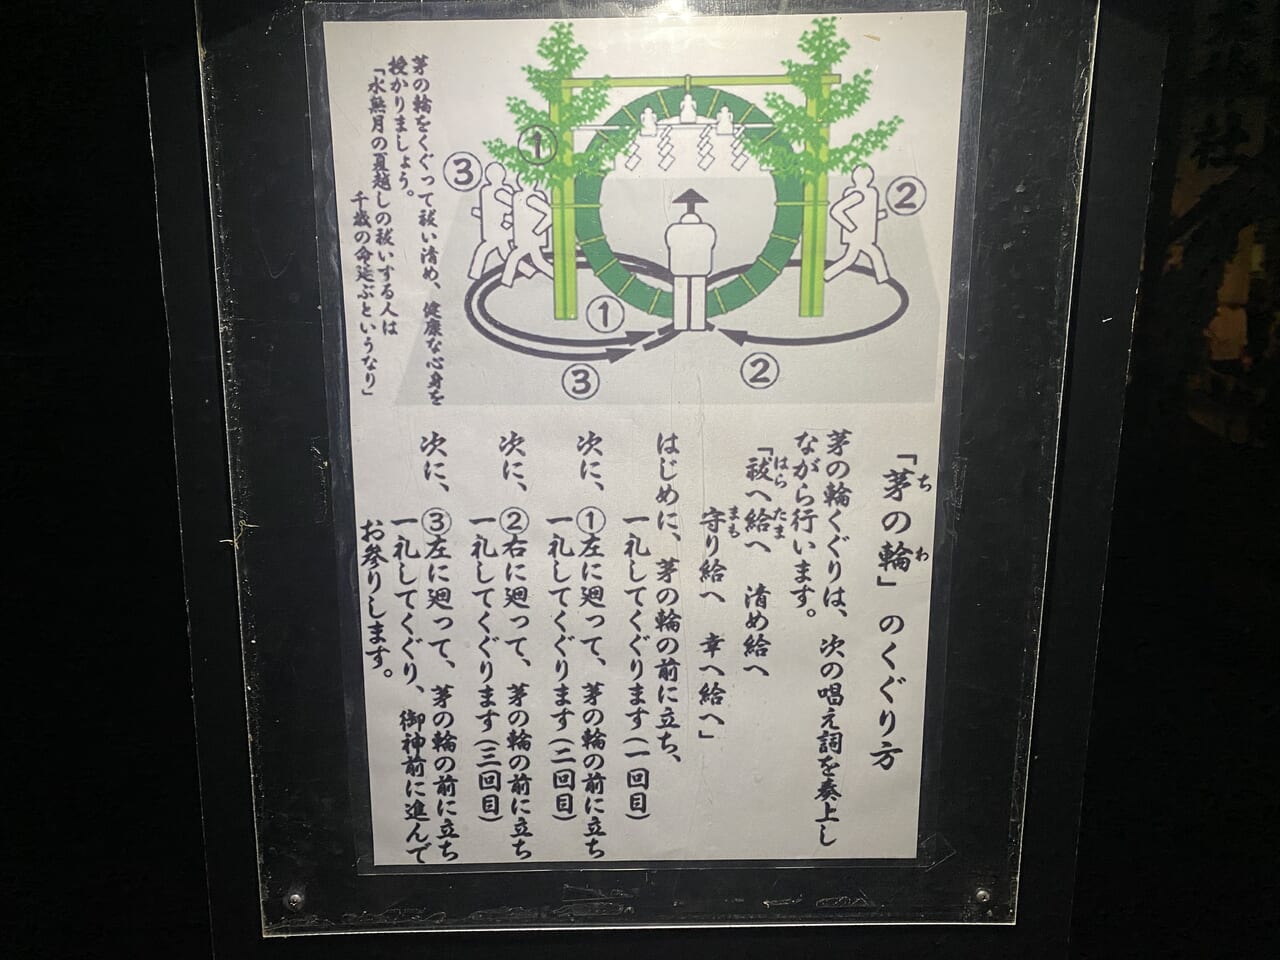 「茅の輪」のくぐり方
茅の輪くぐりは、次の唱え詞を奏上し
ながら行います。
「祓へ給へ　清め給へ
守り給へ　幸へ給へ」
はじめに、茅の輪の前に立ち、
一礼してくぐります(一回目)
次に、①左に廻って、茅の輪の前に立ち
一礼してくぐります(二回目)
次に、②右に廻って、茅の輪の前に立ち
一礼してくぐります(三回目)
次に、③左に廻って、茅の輪の前に立ち
一礼してくぐり、御神前に進んで
お参りします。
茅の輪をくぐって祓い清め、健康な心身を
授かりましょう。
「水無月の夏越しの祓いする人は
千歳の命延ぶというなり」
ち
わ
はら
たま
まも
①
③
②
①
③
②